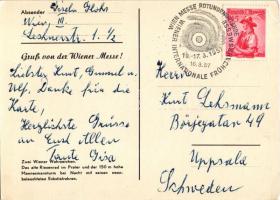 Absender Gisela Glohs
Wien, III.
Lechnerstr. 1. 1/2
Gruß von der Wiener Messe!
Liebster Kurt, Gummel u.
Ulf, Danke für die
Karte,
Herzlichste Grüsse
an Euch Allen
Tante Gisa
Zwei Wiener Wahrzeichen:
Das alte Riesenrad im Prater und der 150 m hohe
Messesenderturm bei Nacht mit seinen neonbeleuchteten
WIEN MESSE ROTUNDENGELÄNDE
WIENER INTERNATIONALE FRÜHJAHRSMESSE
10.-17.3.1957
16.3.57
Herrn
Kurt Lehsmann
Börjegatan 49
Uppsala
Schweden